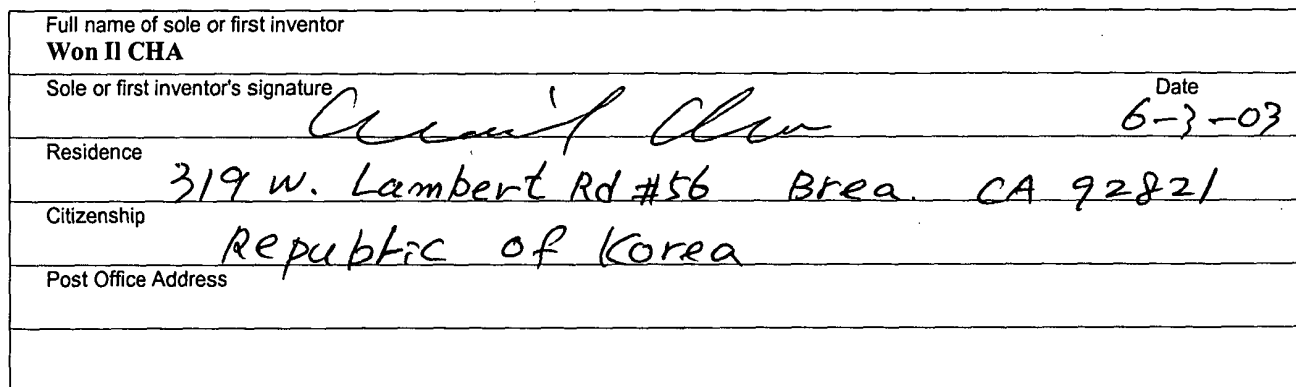 Full name of sole or first inventor
Won Il CHA
Sole or first inventor's signature Date
6-3-03
Residence
319 W. Lambert Rd #56 Brea. CA 92821
Citizenship
Republic of Korea
Post Office Address